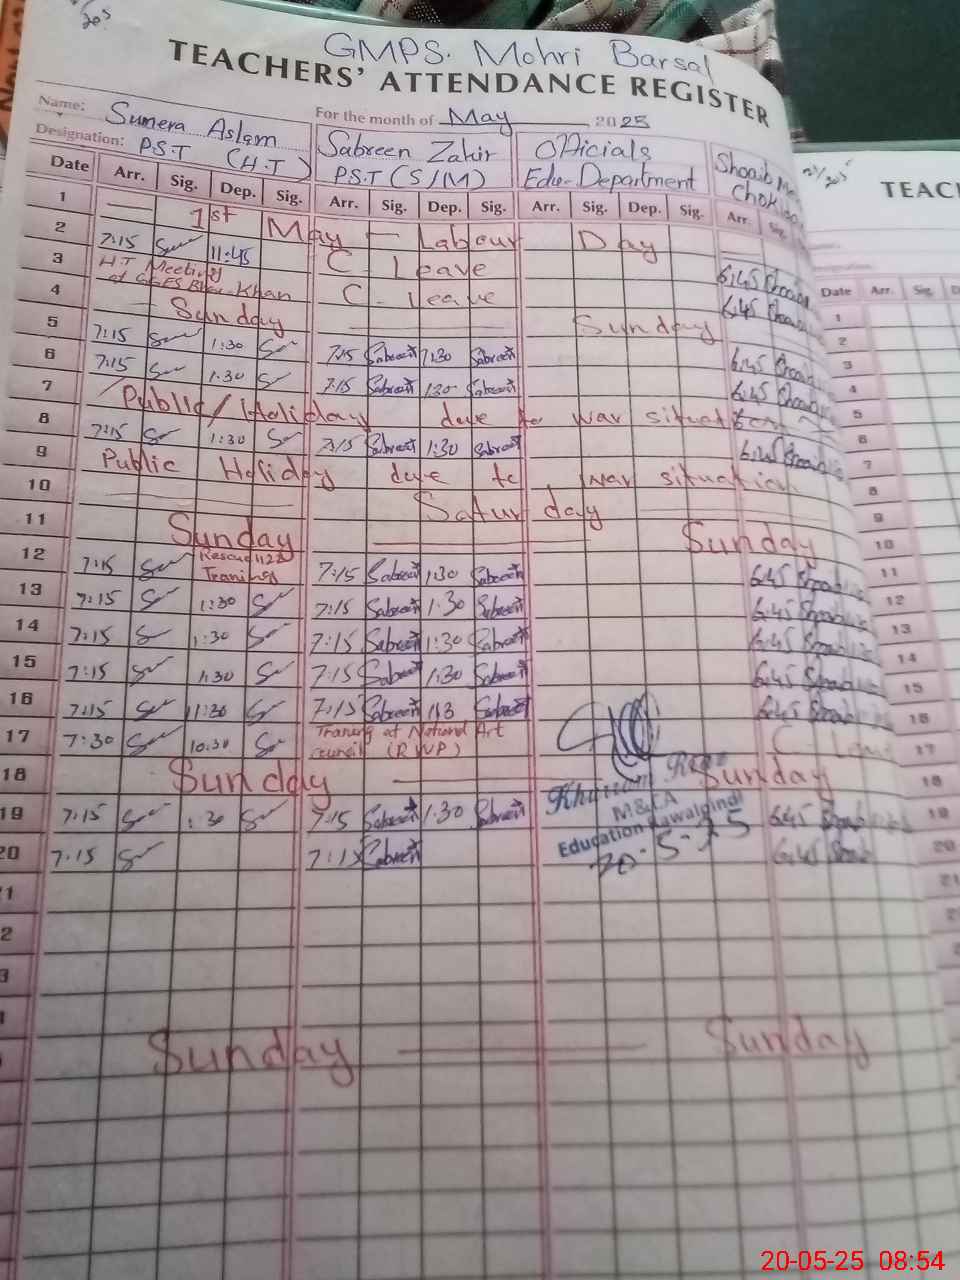 GMPS. Mohri Barsal
TEACHERS' ATTENDANCE REGISTER
Name: Sumera Aslam For the month of May 2025
Designation: P.S.T (H.T) Sabreen Zakir P.S.T (S/M) Officials Edu-Department Shoaib
Date Arr. Sig. Dep. Sig. Arr. Sig. Dep. Sig. Arr. Sig. Dep. Sig. Arr. Sig.
1 1st May - Labour Day
2 7:15 11:45 C - Leave 6:45
3 H.T Meeting at Khan C - Leave 6:45
4 Sunday Sunday
5 7:15 1:30 7:15 Sabreen 1:30 Sabreen 6:45
6 7:15 1:30 7:15 Sabreen 1:30 Sabreen 6:45
7 Public / Holiday deue to war situation
8 7:15 1:30 7:15 Sabreen 1:30 Sabreen 6:45
9 Public Holiday deue to war situation
10 Saturday
11 Sunday Sunday
12 7:15 Rescue 1122 Traning 7:15 Sabreen 1:30 Sabreen 6:45
13 7:15 1:30 7:15 Sabreen 1:30 Sabreen 6:45
14 7:15 1:30 7:15 Sabreen 1:30 Sabreen 6:45
15 7:15 1:30 7:15 Sabreen 1:30 Sabreen 6:45
16 7:15 11:30 7:15 Sabreen Sabreen 6:45
17 7:30 10:30 Traning at National Art Council (RWP) C - Leave
18 Sunday Sunday
19 7:15 1:30 7:15 Sabreen 1:30 Sabreen 6:45
20 7:15 7:15 Sabreen 6:45
Khurram
M&EA
Education Rawalpindi
20-5-25
Sunday Sunday
TEACH
Date Arr. Sig.
1
2
3
4
5
6
7
8
9
10
11
12
13
14
15
16
17
18
19
20
20-05-25 08:54